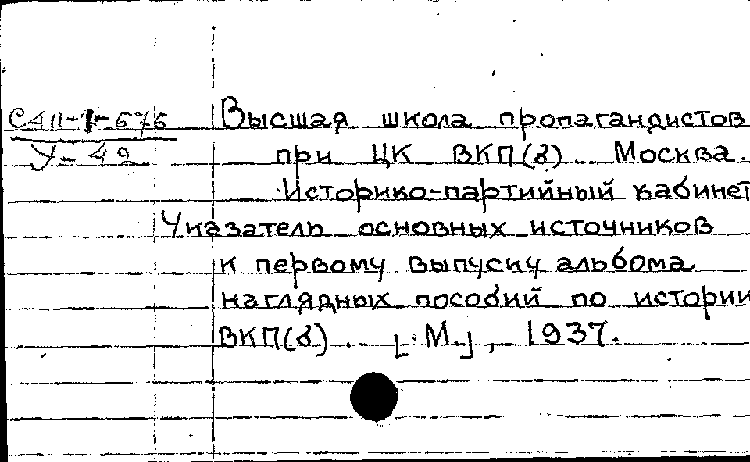 САП-1-676
У-42
Высшая школа пропагандистов
при ЦК ВКП(б). Москва.
Историко-партийный кабинет
Указатель основных источников
к первому выпуску альбома
наглядных пособий по истории
ВКП(б). [М.], 1937.